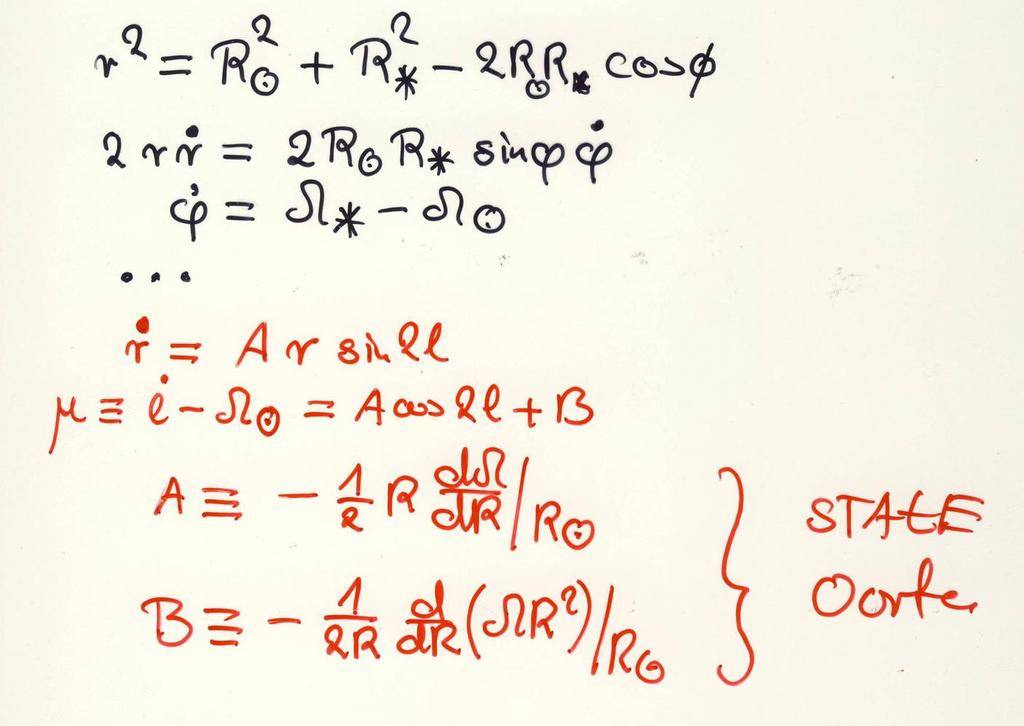 r² = R☉² + R*² − 2R☉R* cosϕ
2 r ṙ = 2R☉R* sinφ φ̇
φ̇ = Ω* − Ω☉
...
ṙ = A r sin 2l
μ ≡ l̇ − Ω☉ = A cos 2l + B
A ≡ − 1/2 R dΩ/dR /R☉
B ≡ − 1/2R d/dR (ΩR²)/R☉
STAŁE
Oorta